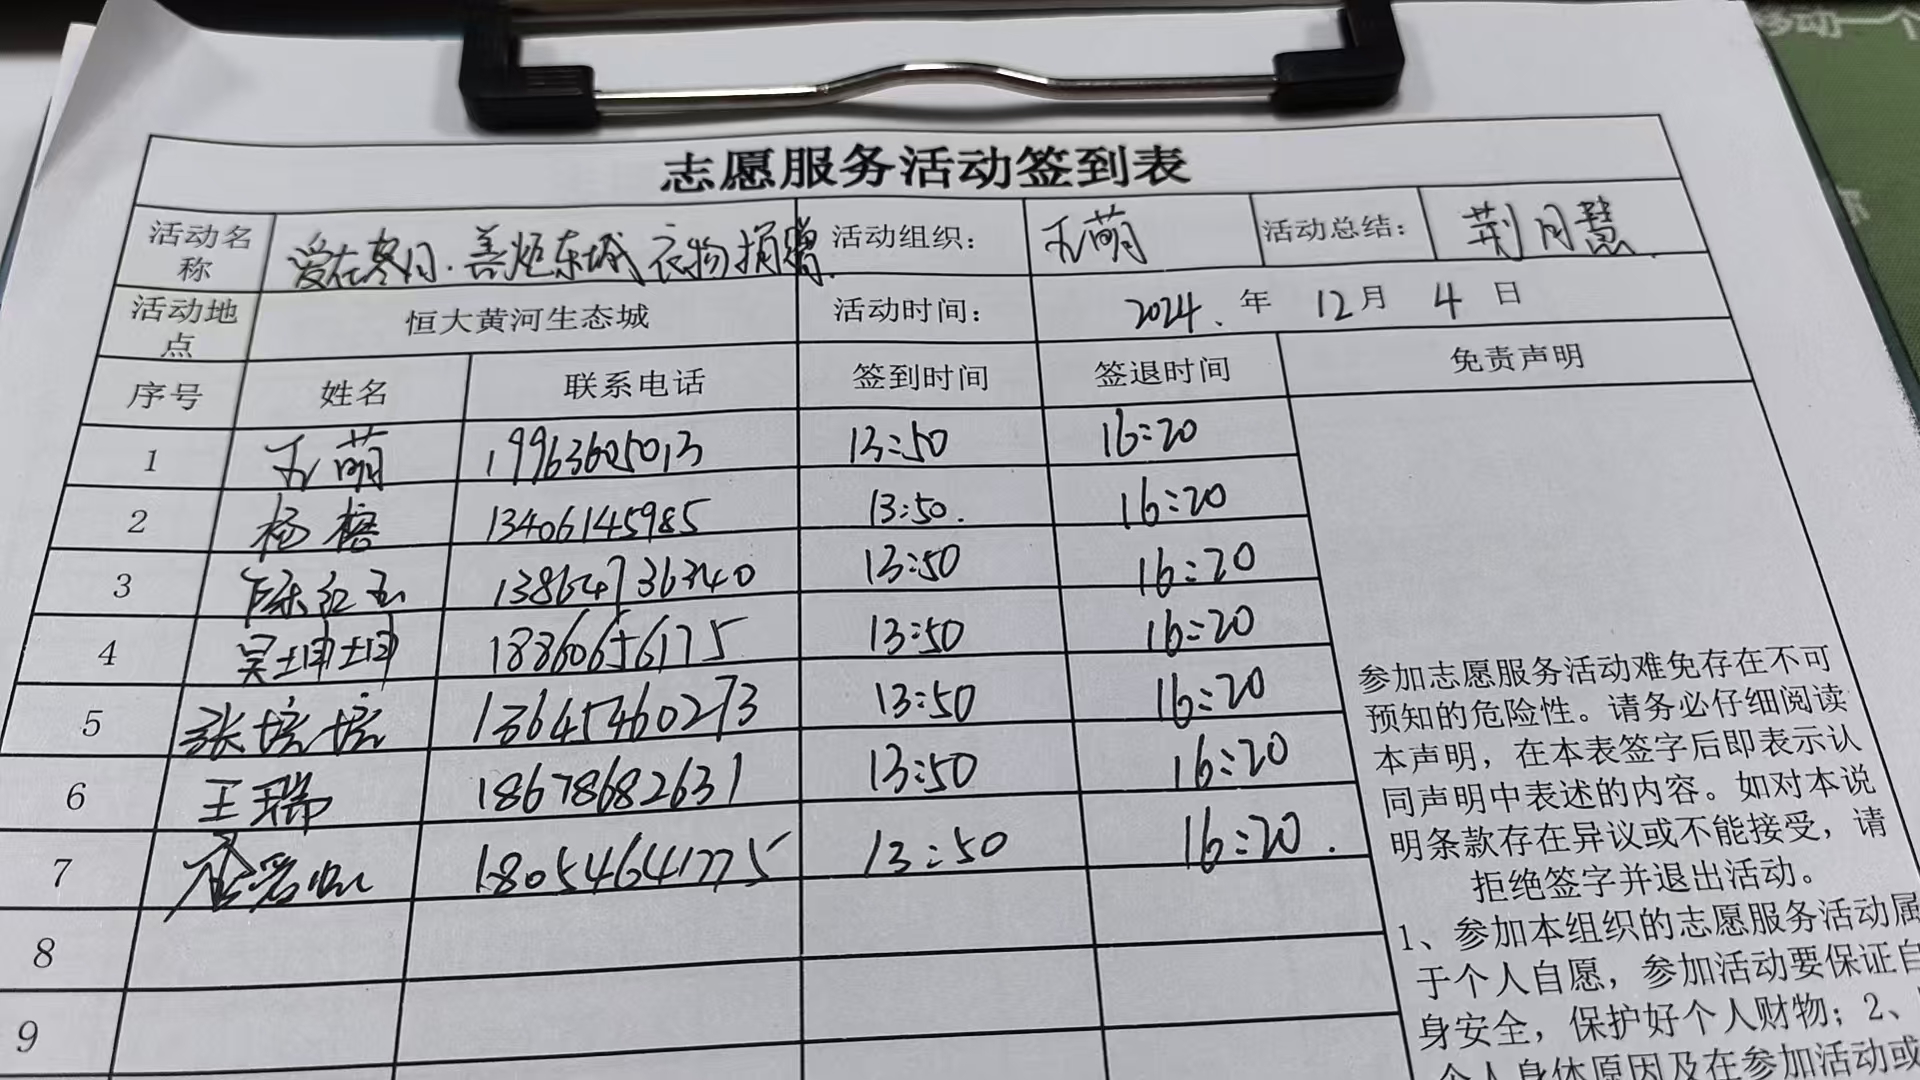 移动一个
志愿服务活动签到表
活动名称 爱在冬日·善炬东城 衣物捐赠 活动组织： 萌 活动总结： 荆月慧
活动地点 恒大黄河生态城 活动时间： 2024、年 12月 4日
序号 姓名 联系电话 签到时间 签退时间 免责声明
1 萌 19963605013 13:50 16:20
2 杨榕 13406145985 13:50. 16:20
3 陈红玉 13864736340 13:50 16:20
4 吴坤坤 18860656175 13:50 16:20
5 张培培 13645460273 13:50 16:20
6 王瑞 18678682631 13:50 16:20
7 18054641775 13:50 16:20.
8
9
参加志愿服务活动难免存在不可
预知的危险性。请务必仔细阅读
本声明，在本表签字后即表示认
同声明中表述的内容。如对本说
明条款存在异议或不能接受，请
拒绝签字并退出活动。
1、参加本组织的志愿服务活动属
于个人自愿，参加活动要保证自
身安全，保护好个人财物；2、
个人身体原因及在参加活动或